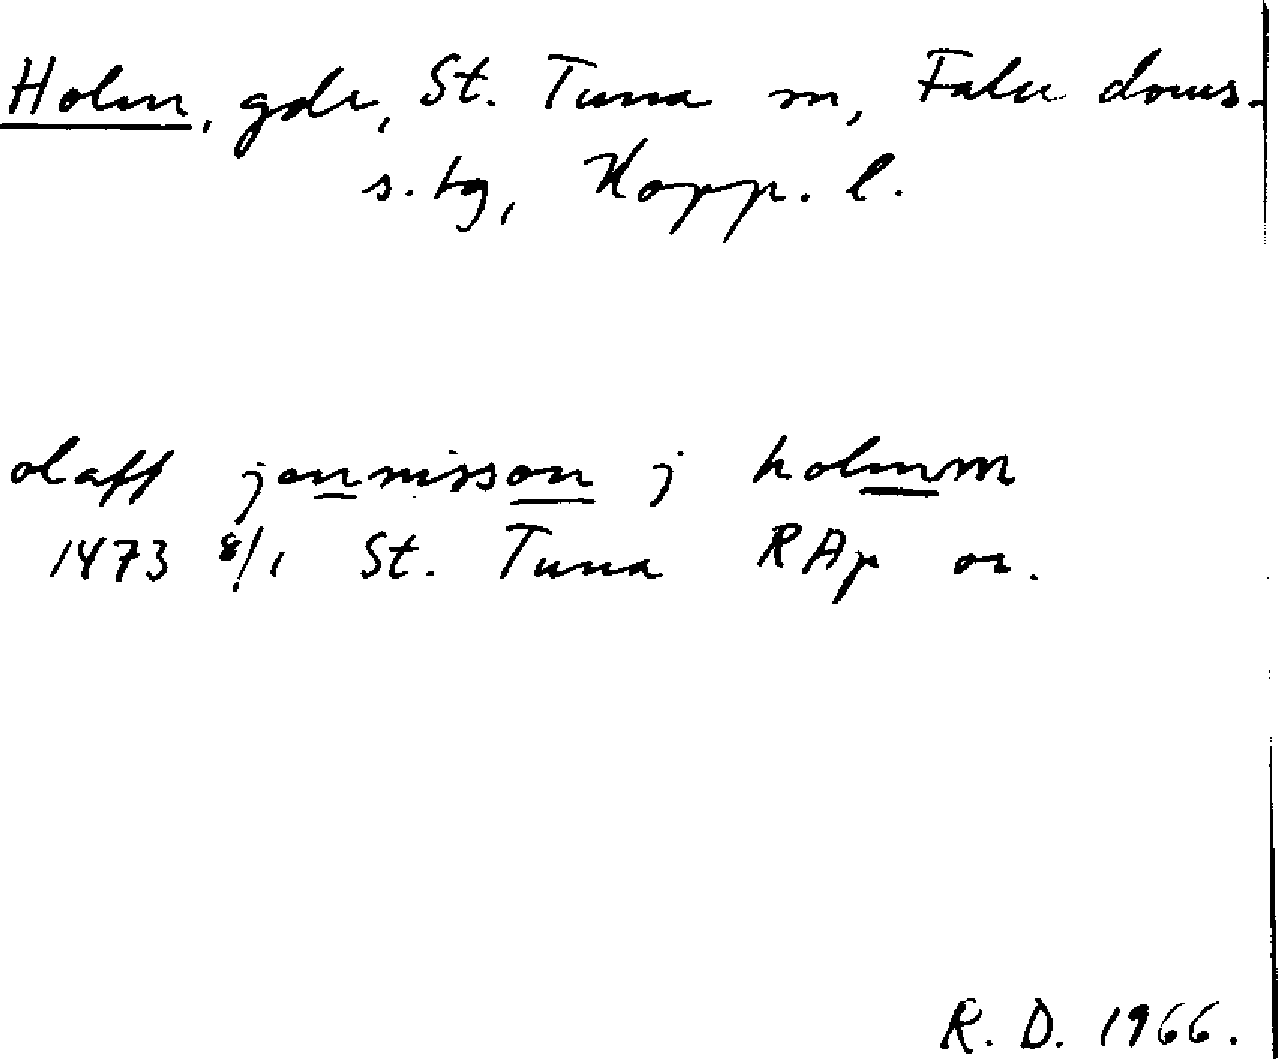 Holm, gdr, St. Tuna sn, Falu doms-
s. tg, Kopp. l.
olaff jonnisson j holmm
1473 8/1 St. Tuna RAp or.
R. D. 1966.